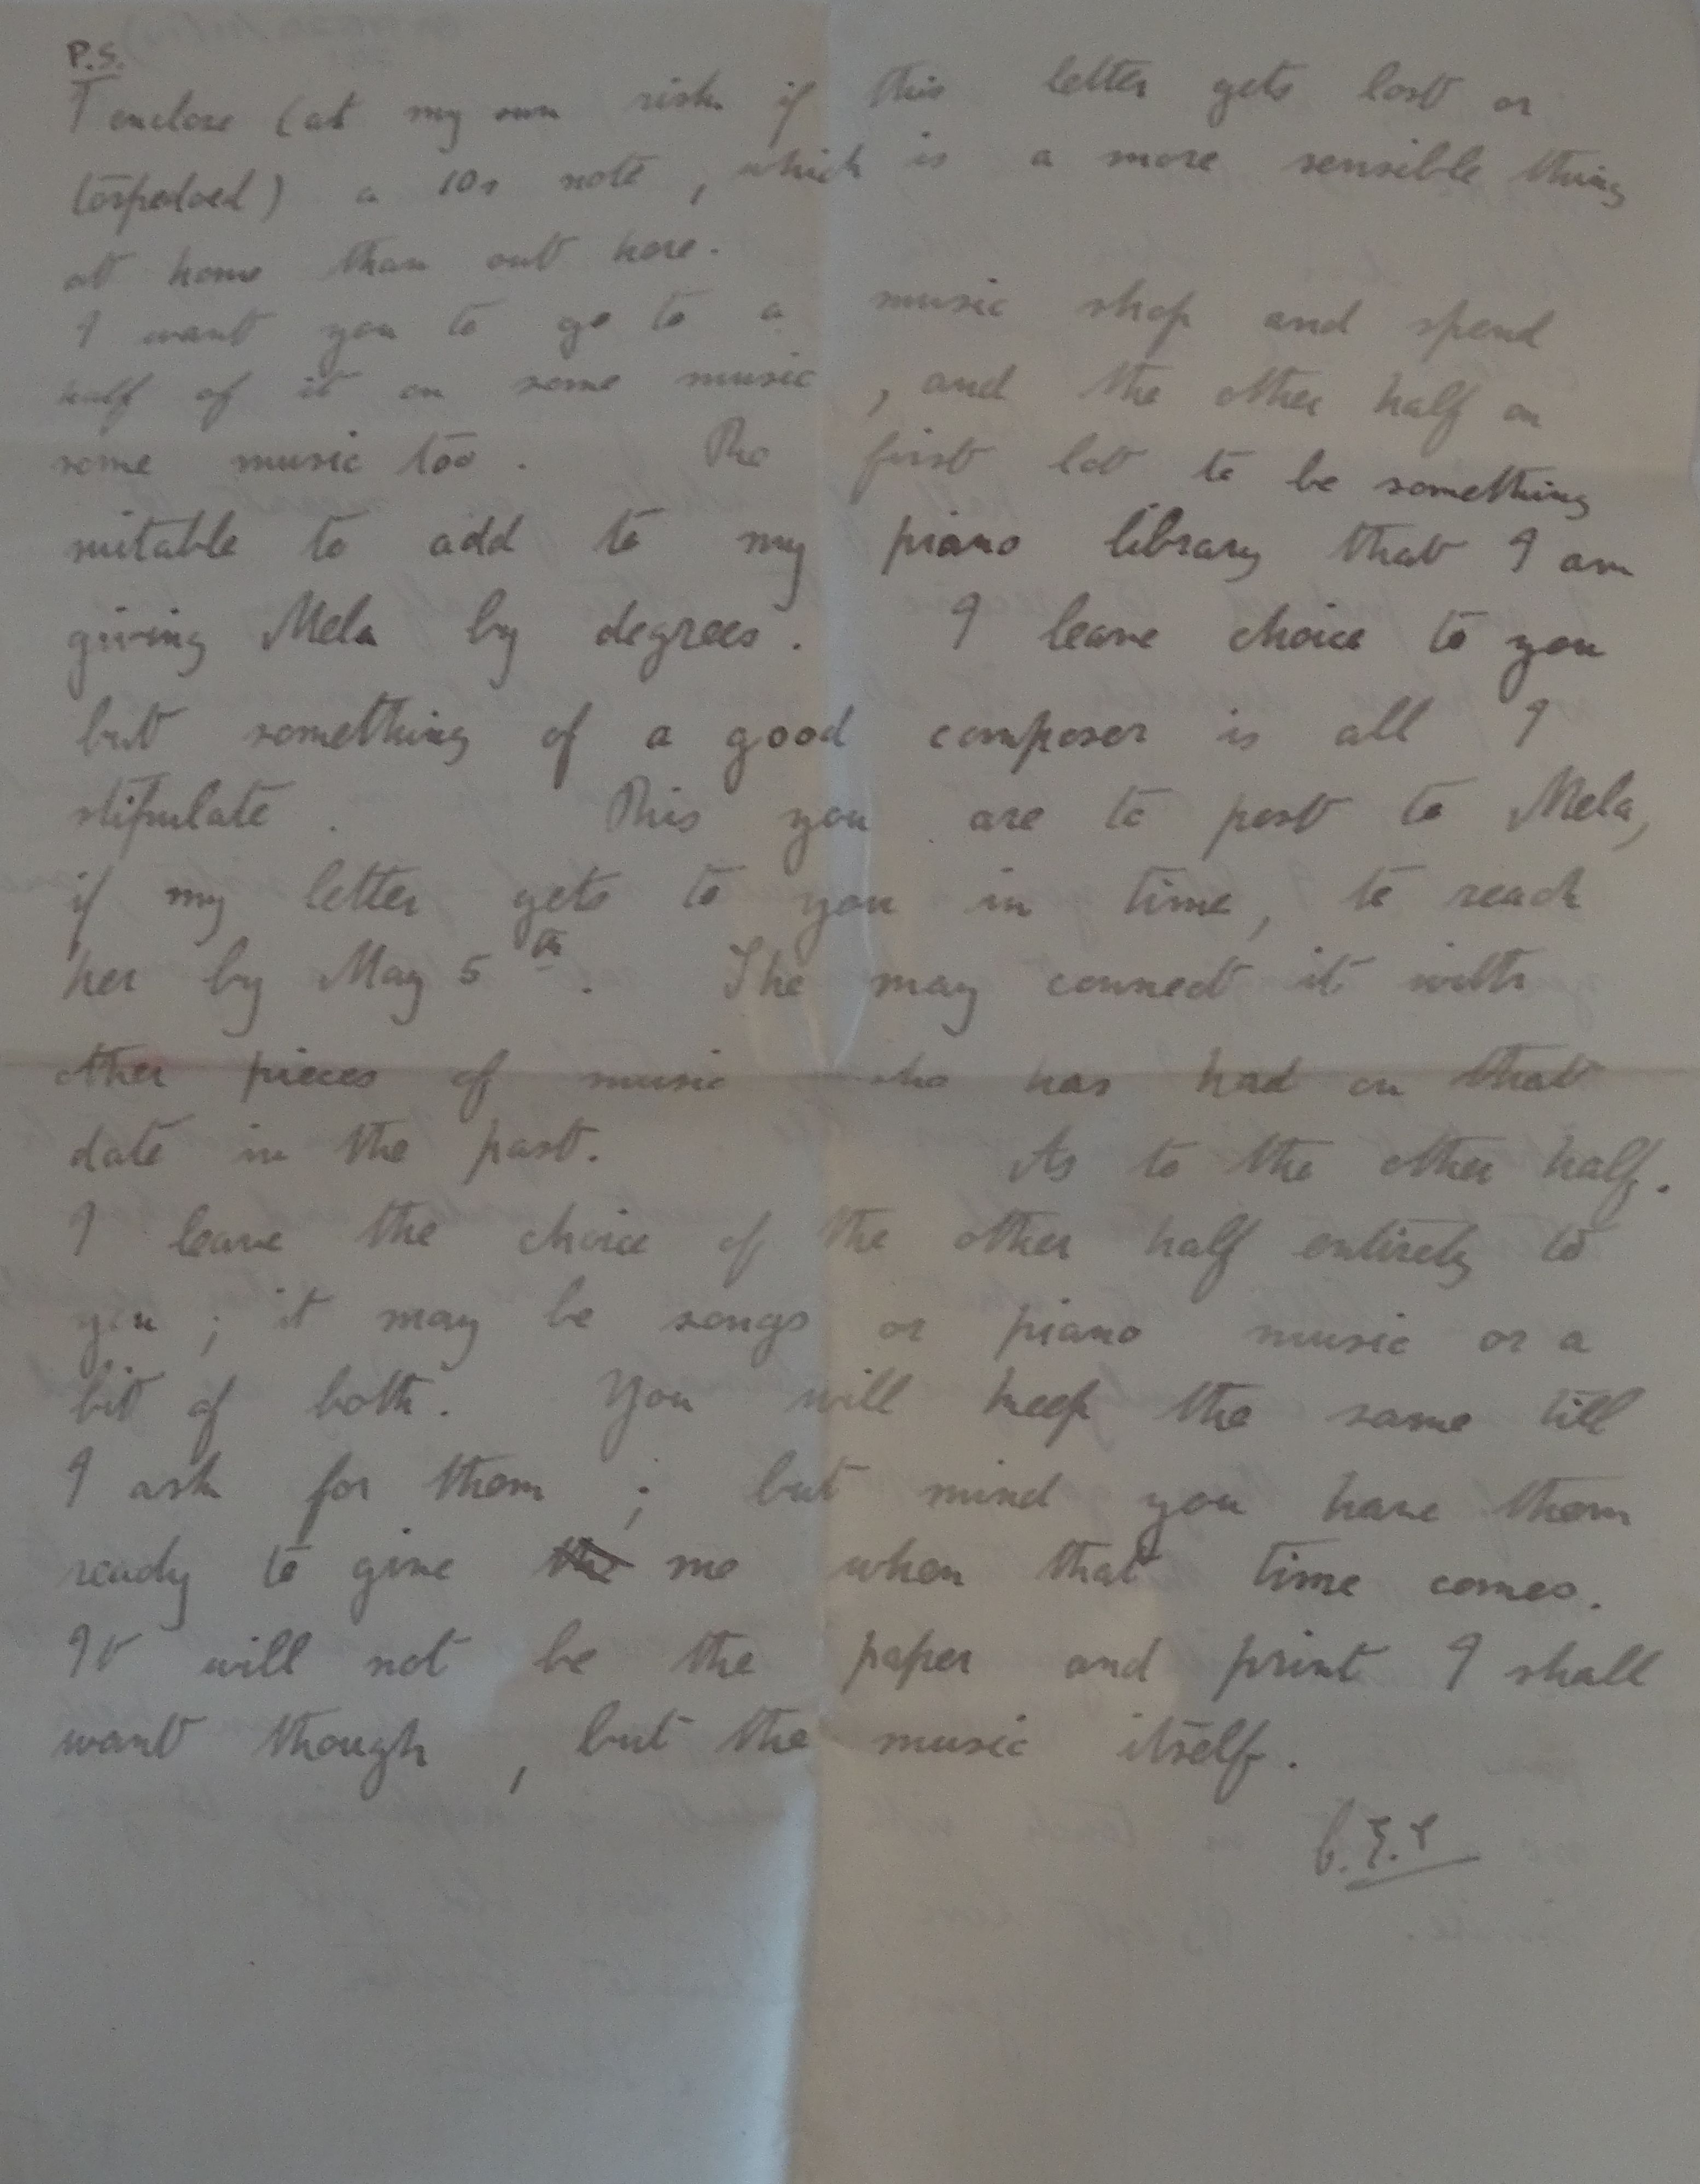 P.S.
I enclose (at my own risk if this letter gets lost or
torpedoed) a 10s note, which is a more sensible thing
at home than out here.
I want you to go to a music shop and spend
half of it on some music, and the other half on
some music too. The first lot to be something
suitable to add to my piano library that I am
giving Mela by degrees. I leave choice to you
but something of a good composer is all I
stipulate. This you are to post to Mela,
if my letter gets to you in time, to reach
her by May 5th. She may connect it with
other pieces of music she has had on that
date in the past. As to the other half.
I leave the choice of the other half entirely to
you; it may be songs or piano music or a
bit of both. You will keep the same till
I ask for them; but mind you have them
ready to give me when that time comes.
It will not be the paper and print I shall
want though, but the music itself.